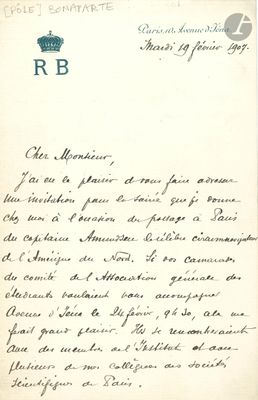 [PÔLE] BONAPARTE
R B
Paris, 10, Avenue d'Iéna
Mardi 19 février 1907.
Cher Monsieur,
J'ai eu le plaisir de vous faire adresser
une invitation pour la soirée que je donne
chez moi à l'occasion du passage à Paris
du capitaine Amundsen le célèbre circumnavigateur
de l'Amérique du Nord. Si vos camarades
du comité de l'Association générale des
étudiants voulaient vous accompagner
Avenue d'Iéna le 24 février, 9h30, cela me
ferait grand plaisir. Ils se rencontreraient
avec des membres de l'Institut et avec
plusieurs de mes collègues des sociétés
scientifiques de Paris.